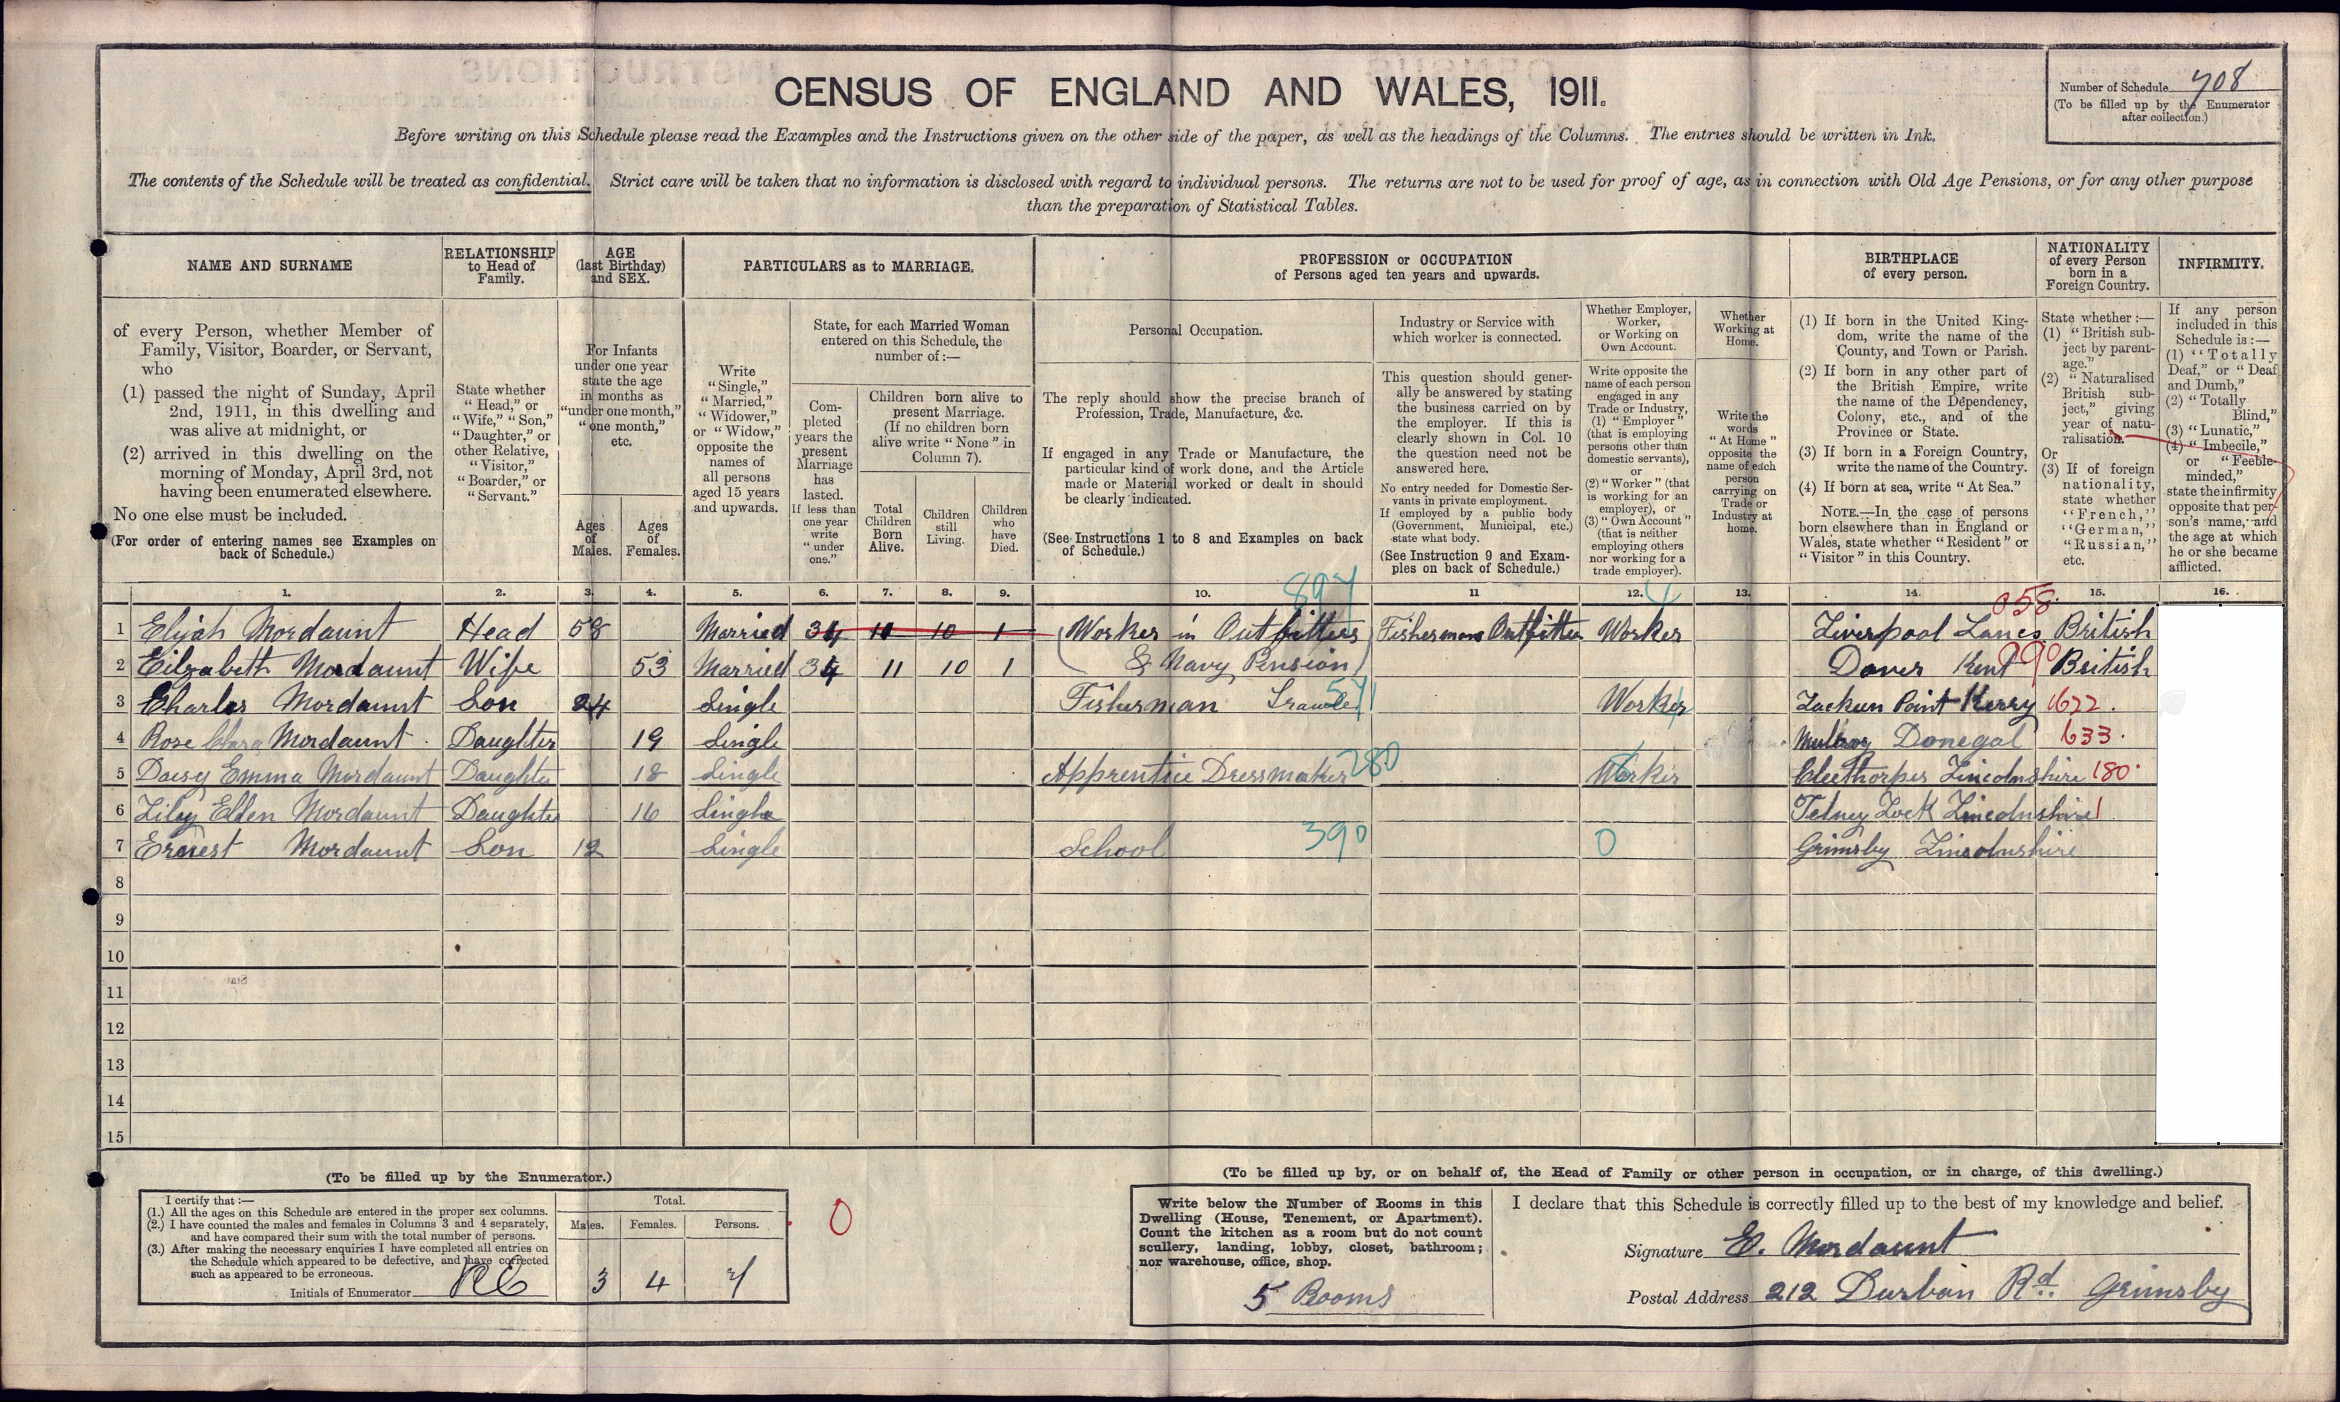 CENSUS OF ENGLAND AND WALES, 1911.
Number of Schedule 708
(To be filled up by the Enumerator
after collection.)
Before writing on this Schedule please read the Examples and the Instructions given on the other side of the paper, as well as the headings of the Columns. The entries should be written in Ink.
The contents of the Schedule will be treated as confidential. Strict care will be taken that no information is disclosed with regard to individual persons. The returns are not to be used for proof of age, as in connection with Old Age Pensions, or for any other purpose
than the preparation of Statistical Tables.
NAME AND SURNAME
of every Person, whether Member of
Family, Visitor, Boarder, or Servant,
who
(1) passed the night of Sunday, April
2nd, 1911, in this dwelling and
was alive at midnight, or
(2) arrived in this dwelling on the
morning of Monday, April 3rd, not
having been enumerated elsewhere.
No one else must be included.
(For order of entering names see Examples on
back of Schedule.)
RELATIONSHIP
to Head of
Family.
State whether
"Head," or
"Wife," "Son,"
"Daughter," or
other Relative,
"Visitor,"
"Boarder," or
"Servant."
AGE
(last Birthday)
and SEX.
For Infants
under one year
state the age
in months as
"under one month,"
"one month,"
etc.
Ages
of
Males.
Ages
of
Females.
PARTICULARS as to MARRIAGE.
Write
"Single,"
"Married,"
"Widower,"
or "Widow,"
opposite the
names of
all persons
aged 15 years
and upwards.
State, for each Married Woman
entered on this Schedule, the
number of:—
Com-
pleted
years the
present
Marriage
has
lasted.
If less than
one year
write
"under
one."
Children born alive to
present Marriage.
(If no children born
alive write "None" in
Column 7).
Total
Children
Born
Alive.
Children
still
Living.
Children
who
have
Died.
PROFESSION or OCCUPATION
of Persons aged ten years and upwards.
Personal Occupation.
The reply should show the precise branch of
Profession, Trade, Manufacture, &c.
If engaged in any Trade or Manufacture, the
particular kind of work done, and the Article
made or Material worked or dealt in should
be clearly indicated.
(See Instructions 1 to 8 and Examples on back
of Schedule.)
Industry or Service with
which worker is connected.
This question should gener-
ally be answered by stating
the business carried on by
the employer. If this is
clearly shown in Col. 10
the question need not be
answered here.
No entry needed for Domestic Ser-
vants in private employment.
If employed by a public body
(Government, Municipal, etc.)
state what body.
(See Instruction 9 and Exam-
ples on back of Schedule.)
Whether Employer,
Worker,
or Working on
Own Account.
Write opposite the
name of each person
engaged in any
Trade or Industry,
(1) "Employer"
(that is employing
persons other than
domestic servants),
or
(2) "Worker" (that
is working for an
employer), or
(3) "Own Account"
(that is neither
employing others
nor working for a
trade employer).
Whether
Working at
Home.
Write the
words
"At Home"
opposite the
name of each
person
carrying on
Trade or
Industry at
home.
BIRTHPLACE
of every person.
(1) If born in the United King-
dom, write the name of the
County, and Town or Parish.
(2) If born in any other part of
the British Empire, write
the name of the Dependency,
Colony, etc., and of the
Province or State.
(3) If born in a Foreign Country,
write the name of the Country.
(4) If born at sea, write "At Sea."
NOTE.—In the case of persons
born elsewhere than in England or
Wales, state whether "Resident" or
"Visitor" in this Country.
NATIONALITY
of every Person
born in a
Foreign Country.
State whether :—
(1) "British sub-
ject by parent-
age."
(2) "Naturalised
British sub-
ject," giving
year of natu-
ralisation.
Or
(3) If of foreign
nationality,
state whether
"French,"
"German,"
"Russian,"
etc.
INFIRMITY.
If any person
included in this
Schedule is :—
(1) "Totally
Deaf," or "Deaf
and Dumb,"
(2) "Totally
Blind,"
(3) "Lunatic,"
(4) "Imbecile,"
or "Feeble-
minded,"
state the infirmity
opposite that per-
son's name, and
the age at which
he or she became
afflicted.
1. 2. 3. 4. 5. 6. 7. 8. 9. 10. 11 12. 13. 14. 15. 16.
897 4 058
1 Elijah Mordaunt Head 58 Married 34 11 10 1 (Worker in Outfitters Fishermans Outfitter Worker Liverpool Lancs British
& Navy Pension)
2 Eilzabeth Mordaunt Wife 53 Married 34 11 10 1 Dover Kent 990 British
3 Charles Mordaunt Son 24 Single Fisherman Trawler 571 Worker 4 Point Kerry 1622.
4 Rose Clara Mordaunt Daughter 19 Single Mulroy Donegal 633.
5 Daisy Emma Mordaunt Daughter 18 Single Apprentice Dressmaker 280 Worker Cleethorpes Lincolnshire 180.
6 Lily Ellen Mordaunt Daughter 16 Single Tetney Lock Lincolnshire
7 Ernest Mordaunt Son 12 Single School 390 0 Grimsby Lincolnshire
8
9
10
11
12
13
14
15
(To be filled up by the Enumerator.)
I certify that :—
(1.) All the ages on this Schedule are entered in the proper sex columns.
(2.) I have counted the males and females in Columns 3 and 4 separately,
and have compared their sum with the total number of persons.
(3.) After making the necessary enquiries I have completed all entries on
the Schedule which appeared to be defective, and have corrected
such as appeared to be erroneous.
Initials of Enumerator
Total.
Males. Females. Persons.
3 4 7
0
(To be filled up by, or on behalf of, the Head of Family or other person in occupation, or in charge, of this dwelling.)
Write below the Number of Rooms in this
Dwelling (House, Tenement, or Apartment).
Count the kitchen as a room but do not count
scullery, landing, lobby, closet, bathroom;
nor warehouse, office, shop.
5 Rooms
I declare that this Schedule is correctly filled up to the best of my knowledge and belief.
Signature E. Mordaunt
Postal Address 212 Durban Rd. Grimsby